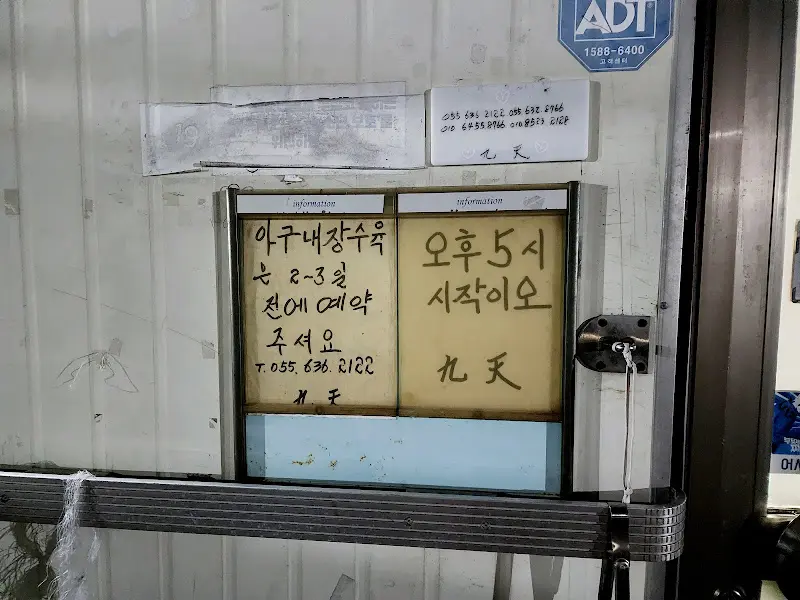 ADT
1588-6400
고객센터
055 636 2122 055 632 8766
010 6455 8766 010 8523 2128
九 天
information
information
아구내장수육
은 2~3일
전에 예약
주셔요
T. 055. 636. 2122
九 天
오후 5시
시작이오
九 天